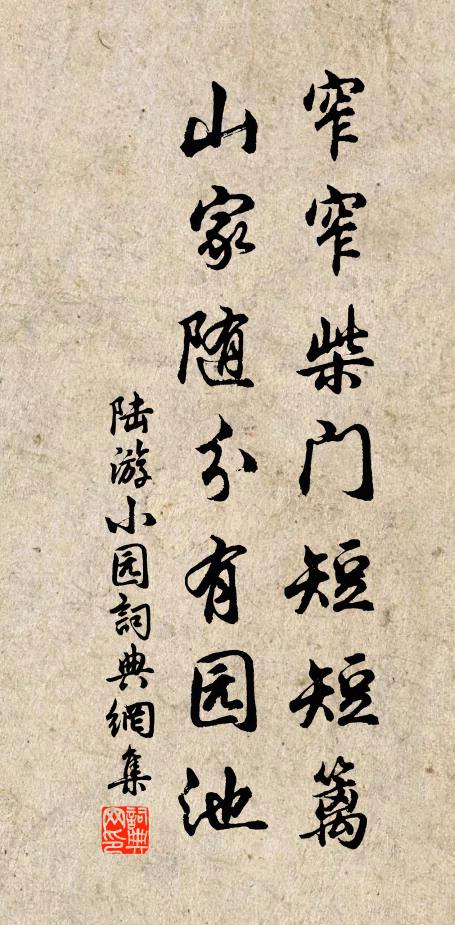 窄窄柴门短短篱
山家随分有园池
陆游小园詞典網集
詞典网印